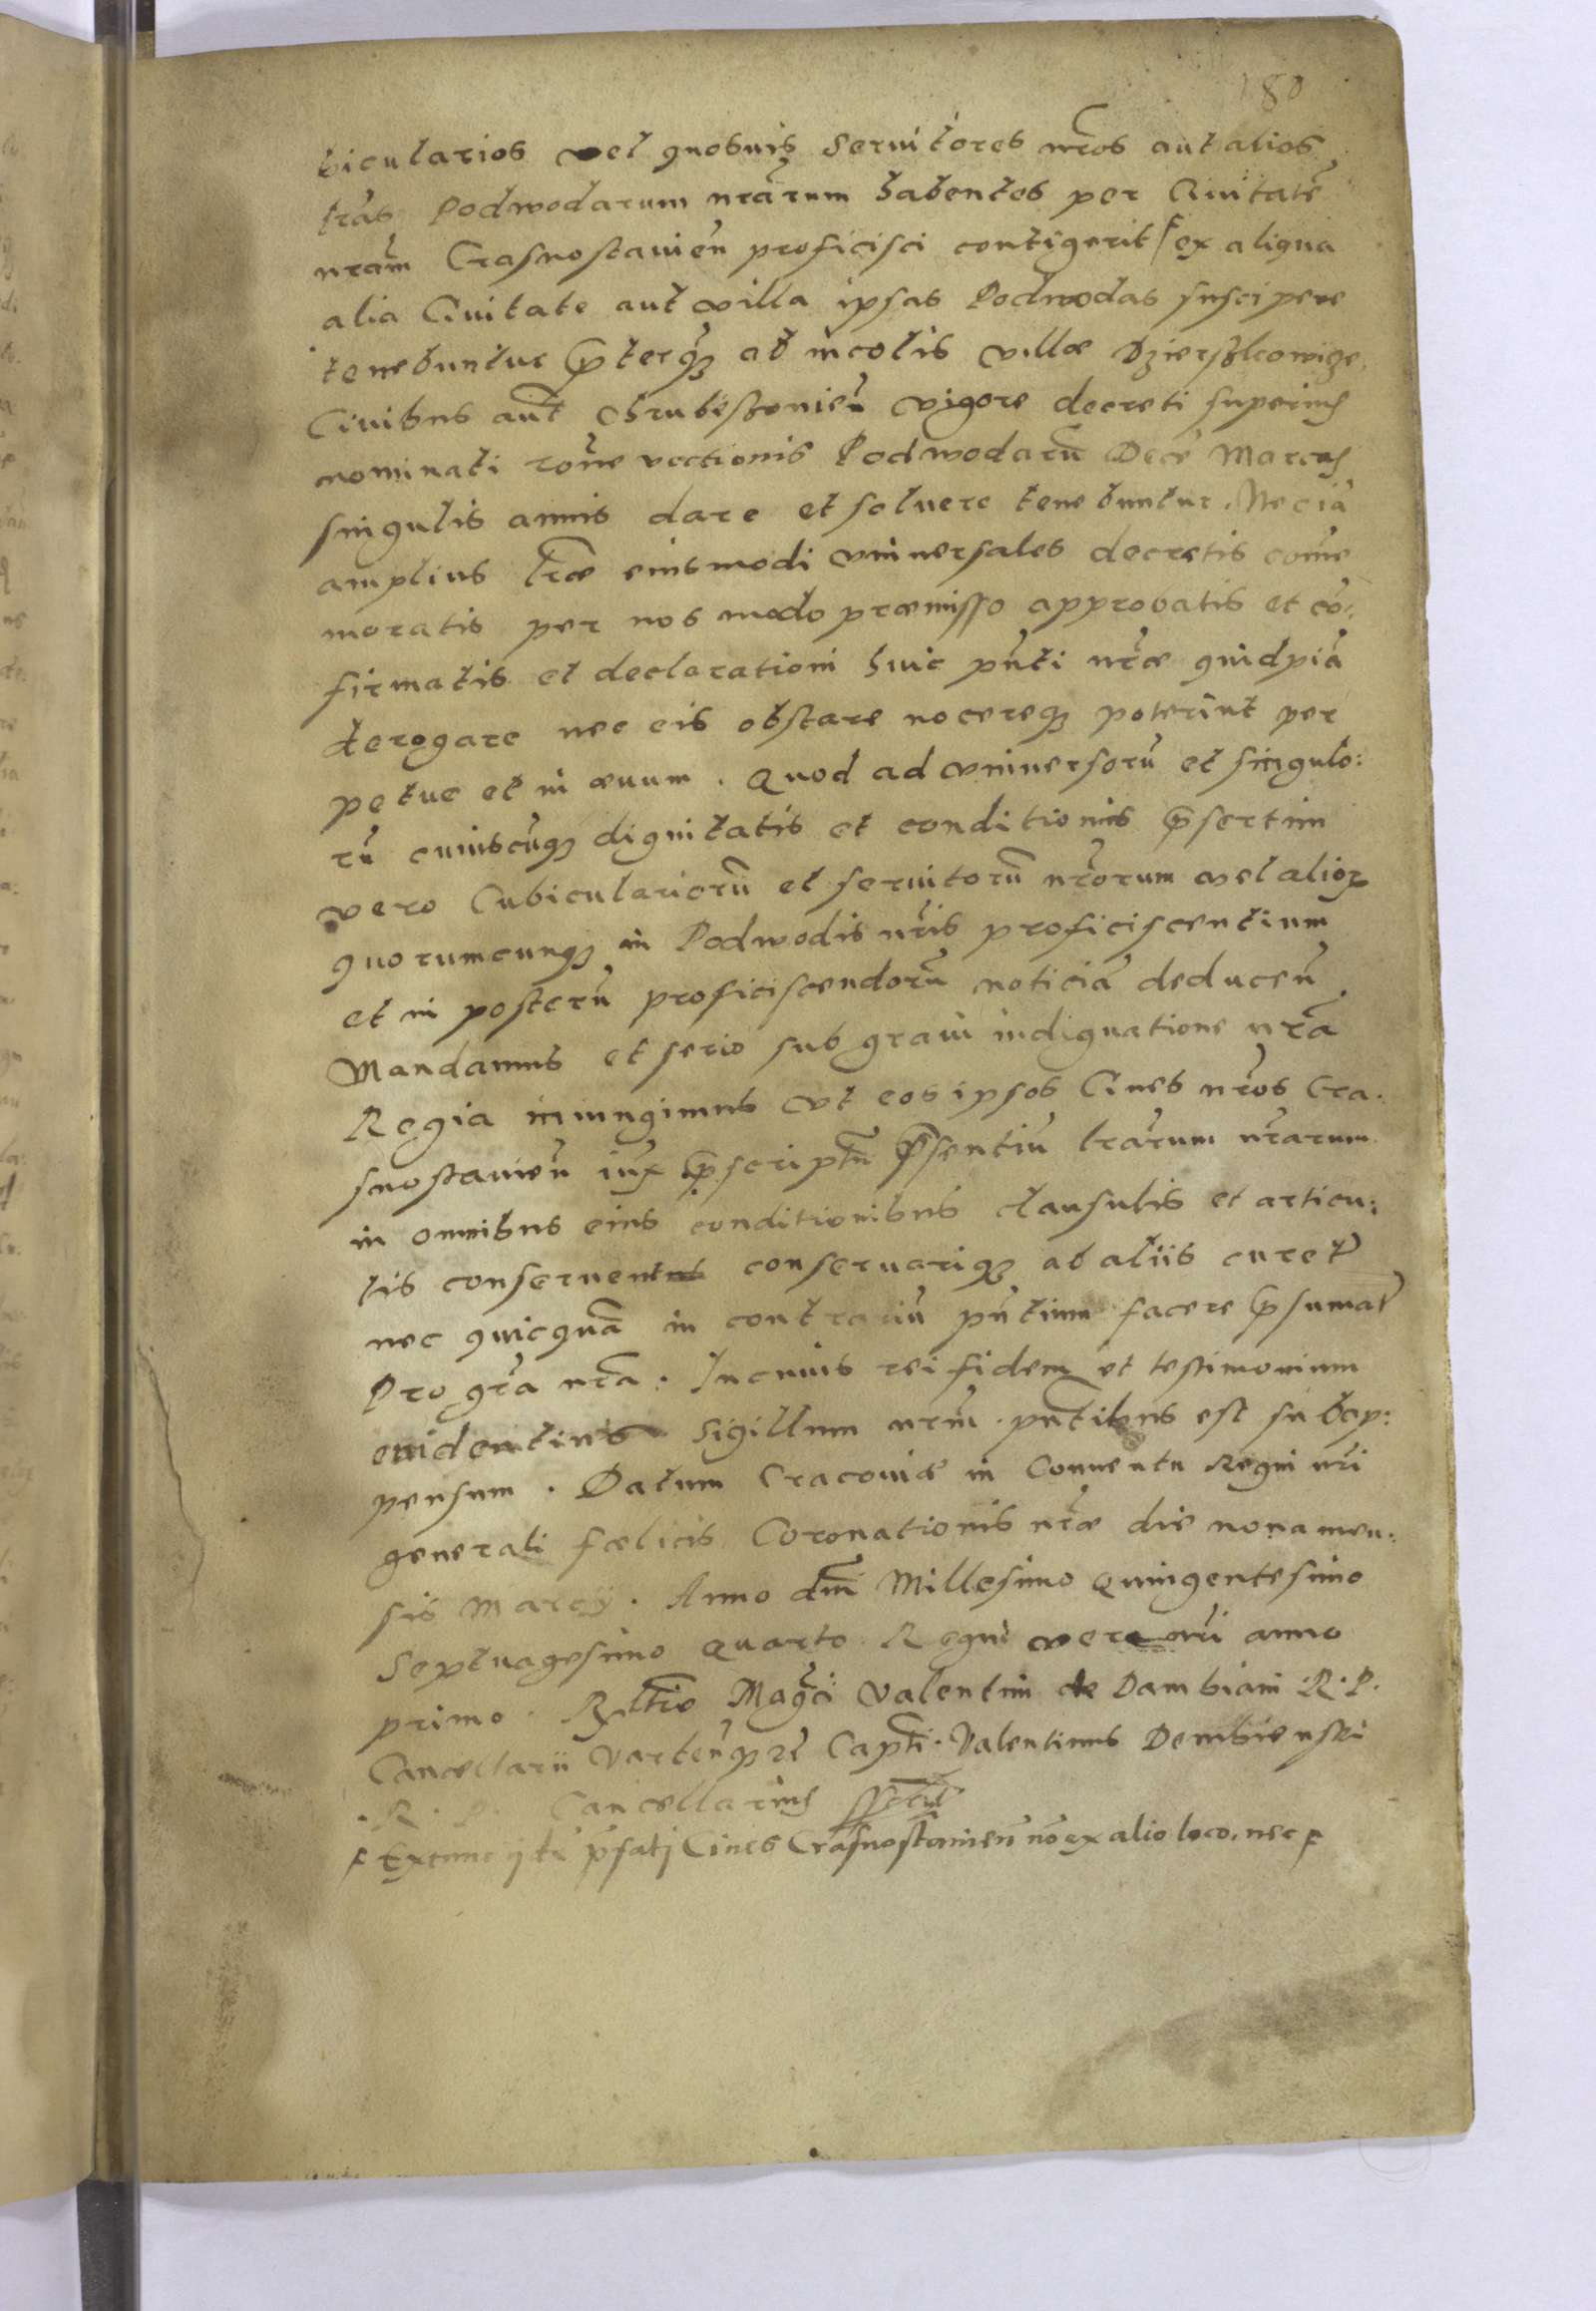 180
bicularios vel quosuis Seruitores nr̃os aut alios
lr̃as Podwodarum nrãrum habentes per Ciuitatẽ
nrãm Crasnostauieñ proficisci contigerit F ex aliqua
alia Ciuitate aut villa ipsas Podwodas suscipere
tenebuntur p̃terq̃ꝫ ab incolis villæ
Ciuibus aũt Hrubieskouieñ vigore decreti superius
nominati rõne vectionis Podwodarũ Decẽ Marcas
singulis annis dare et soluere tenebuntur. Nec iã
amplius lr̃æ eiusmodi vniuersales decretis com̃e
moratis per nos modo præmisso approbatis et cõ:
firmatis et declarationi huic pñti nr̃æ quidpiã
derogare nec eis obstare nocereqꝫ poterint per
petue et in æuum. Quod ad vniuersorũ et singulo:
rũ cuiuscũqꝫ dignitatis et conditionis p̃sertim
vero Cubiculariorũ et seruitorũ nr̃orum vel alioꝝ
quorumcunqꝫ in Podwodis nr̃is proficiscentium
et in posterũ proficiscendorũ noticiã deduceñ.
Mandamus et serio sub graui indignatione nr̃a
Regia iniungimus vt eos ipsos Ciues nr̃os Cra:
snostauieñ iux p̃scriptũ p̃sentiũ lrãrum nr̃arum
in omnibus eius conditionibus clausulis et articu:
lis conseruent conseruariqꝫ ab aliis curent
nec quicquã in contrariũ pñtium facere p̃sumat
Pro gr̃a nr̃a. In cuius rei fidem et testimonium
euidentius Sigillum nr̃m pñtibus est subap:
pensum. Datum Cracouiæ in Conuentu Regni nr̃i
generali fœlicis Coronationis nr̃æ die nona men:
sis Marcij. Anno dñi Millesimo Quingentesimo
Septuagesimo Quarto Regni vero nr̃i anno
primo. Rltio Magci Valentini de Dambiani R. P.
Cancellarii Capti. Valentinus Dembienski
R. P. Cancellarius
F Extunc p̃fati Ciues Crasnostauieñ nõ ex alio loco, nec F